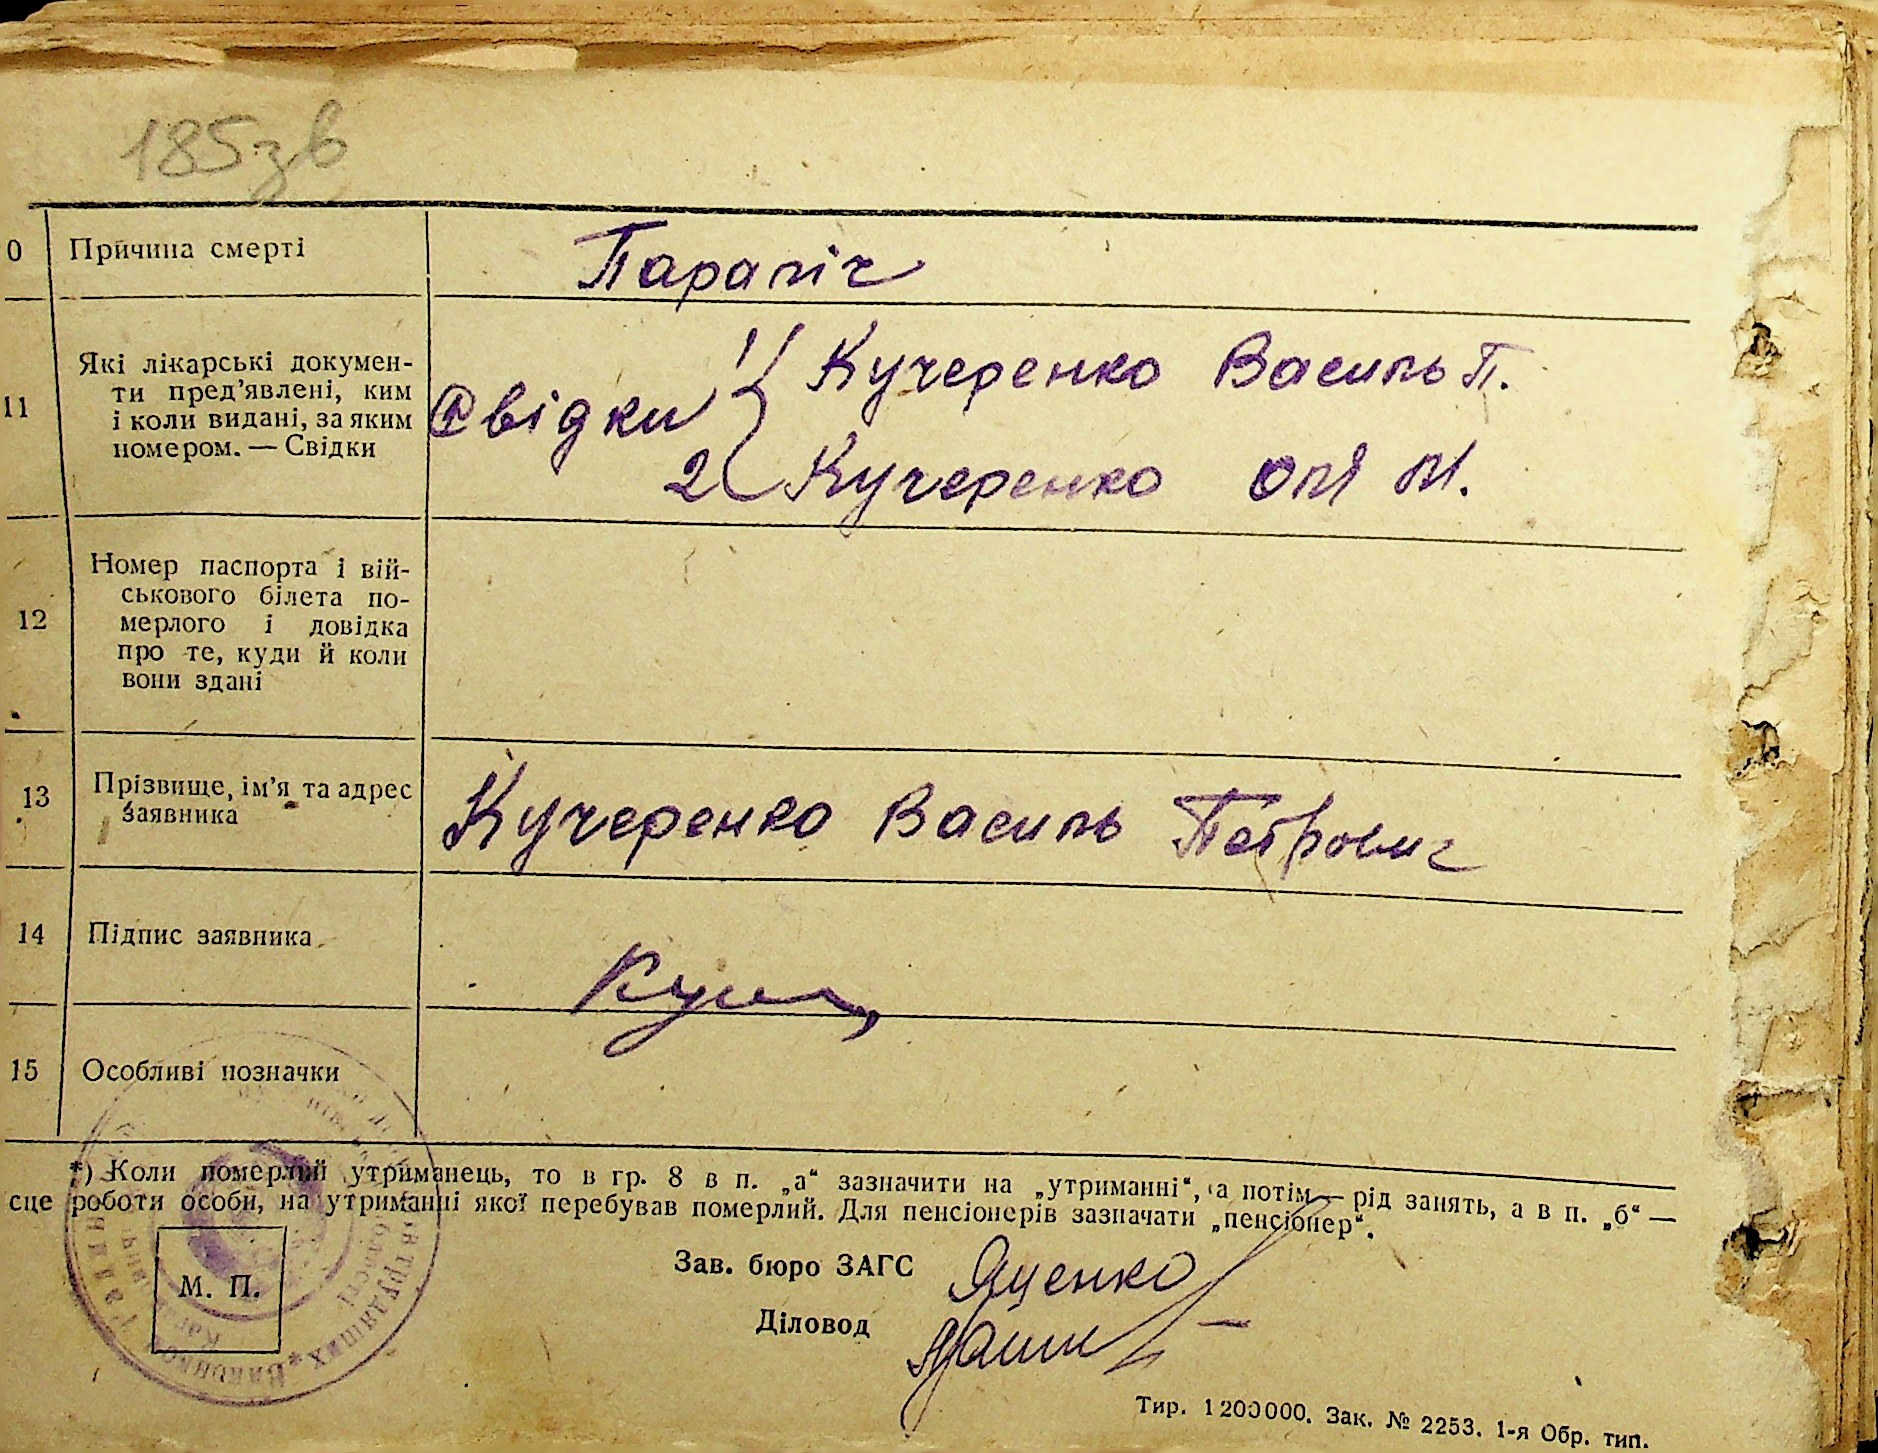 185зв
0 Причина смерті Параліч
11 Які лікарські докумен-
ти пред'явлені, ким
і коли видані, за яким
номером. — Свідки
Свідки 1 Кучеренко Василь П.
2 Кучеренко
12 Номер паспорта і вій-
ськового білета по-
мерлого і довідка
про те, куди й коли
вони здані
13 Прізвище, ім'я та адрес
заявника
Кучеренко Василь Петрович
14 Підпис заявника
15 Особливі позначки
*) Коли померлий утриманець, то в гр. 8 в п. „а“ зазначити на „утриманні“, а потім — рід занять, а в п. „б“ —
сце роботи особи, на утриманні якої перебував померлий. Для пенсіонерів зазначати „пенсіонер“.
М. П.
Зав. бюро ЗАГС Яценко
Діловод
Тир. 1200000. Зак. № 2253. 1-я Обр. тип.